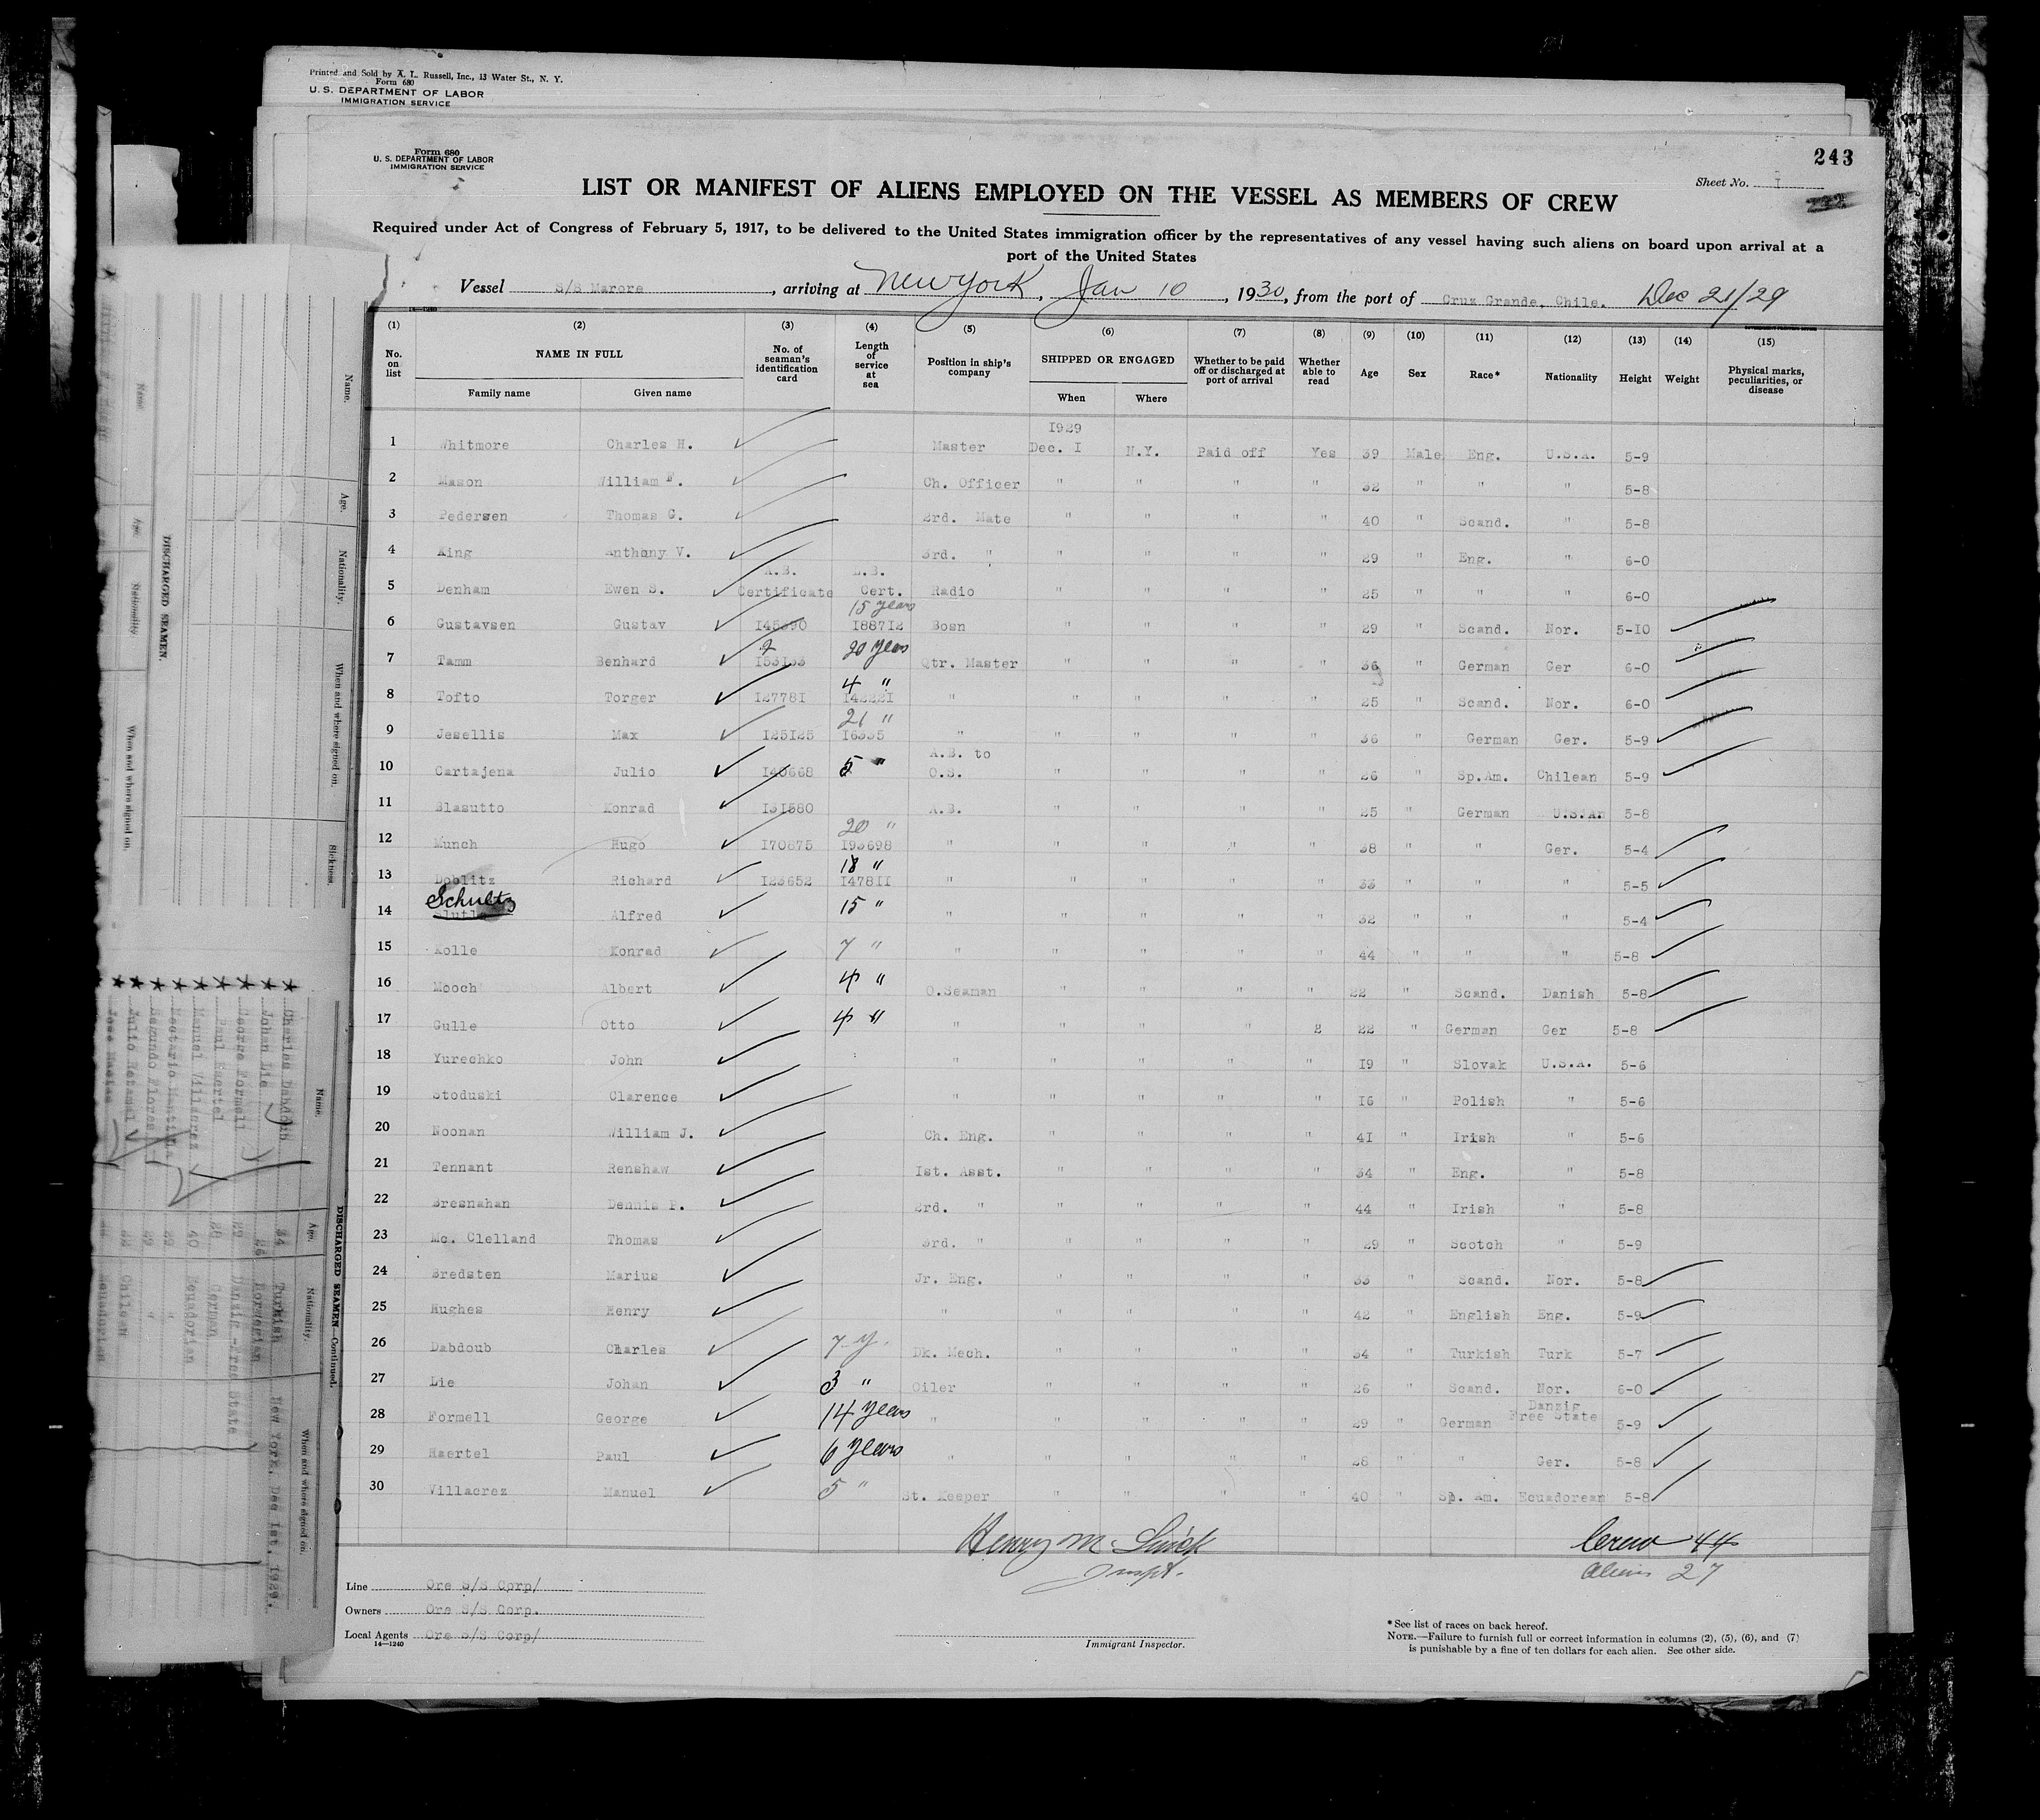 Printed and Sold by A. L. Russell, Inc., 13 Water St., N. Y.
Form 680
U. S. DEPARTMENT OF LABOR
IMMIGRATION SERVICE
243
Form 680
U. S. DEPARTMENT OF LABOR
IMMIGRATION SERVICE
Sheet No. I
LIST OR MANIFEST OF ALIENS EMPLOYED ON THE VESSEL AS MEMBERS OF CREW
Required under Act of Congress of February 5, 1917, to be delivered to the United States immigration officer by the representatives of any vessel having such aliens on board upon arrival at a
port of the United States
Vessel S/S Marore, arriving at New York, Jan 10, 1930, from the port of Cruz Grande, Chile. Dec 21/29
14—1240
(1) (2) (3) (4) (5) (6) (7) (8) (9) (10) (11) (12) (13) (14) (15)
No. on list NAME IN FULL No. of seaman's identification card Length of service at sea Position in ship's company SHIPPED OR ENGAGED Whether to be paid off or discharged at port of arrival Whether able to read Age Sex Race* Nationality Height Weight Physical marks, peculiarities, or disease
Family name Given name When Where
1929
1 Whitmore Charles H. Master Dec. I N.Y. Paid off Yes 39 Male Eng. U.S.A. 5-9
2 Mason William F. Ch. Officer " " " " 32 " " " 5-8
3 Pedersen Thomas G. 2rd. Mate " " " " 40 " Scand. " 5-8
4 King Anthony V. 3rd. " " " " " 29 " Eng. " 6-0
A.B. L.B.
5 Denham Ewen S. Certificate Cert. Radio " " " " 25 " " " 6-0
15 years
6 Gustavsen Gustav 145390 188712 Bosn " " " " 29 " Scand. Nor. 5-10
20 years
7 Tamm Benhard 153133 Qtr. Master " " " " 36 " German Ger 6-0
4 "
8 Tofto Torger 127781 142221 " " " " " 25 " Scand. Nor. 6-0
21 "
9 Jesellis Max 125125 16335 " " " " " 36 " German Ger. 5-9
A.B. to
10 Cartajena Julio 140668 5 " O.S. " " " " 26 " Sp.Am. Chilean 5-9
11 Blasutto Konrad 131580 A.B. " " " " 25 " German U.S.A. 5-8
20 "
12 Munch Hugo 170875 193698 " " " " " 38 " " Ger. 5-4
18 "
13 Doblitz Richard 123652 147811 " " " " " 33 " " " 5-5
Schultz
14 Alfred 15 " " " " " " 32 " " " 5-4
15 Kolle Konrad 7 " " " " " " 44 " " " 5-8
16 Mooch Albert 4 " O.Seaman " " " " 22 " Scand. Danish 5-8
17 Gulle Otto 4 " " " " " 2 22 " German Ger 5-8
18 Yurechko John " " " " " 19 " Slovak U.S.A. 5-6
19 Stoduski Clarence " " " " " 16 " Polish " 5-6
20 Noonan William J. Ch. Eng. " " " " 41 " Irish " 5-6
21 Tennant Renshaw Ist. Asst. " " " " 34 " Eng. " 5-8
22 Bresnahan Dennis P. 2rd. " " " " " 44 " Irish " 5-8
23 Mc. Clelland Thomas 3rd. " " " " " 29 " Scotch " 5-9
24 Bredsten Marius Jr. Eng. " " " " 33 " Scand. Nor. 5-8
25 Hughes Henry " " " " " 42 " English Eng. 5-9
26 Dabdoub Charles 7 y. Dk. Mech. " " " " 34 " Turkish Turk 5-7
27 Lie Johan 3 " Oiler " " " " 26 " Scand. Nor. 6-0
Danzig
28 Formell George 14 years " " " " " 29 " German Free State 5-9
29 Haertel Paul 6 years " " " " " 28 " " Ger. 5-8
30 Villacrez Manuel 5 " St. Keeper " " " " 40 " Sp. Am. Ecuadorean 5-8
Henry M.
Inspt.
Crew 44
Aliens 27
Line Ore S/S Corp/
Owners Ore S/S Corp.
Local Agents Ore S/S Corp/
14—1240
Immigrant Inspector.
*See list of races on back hereof.
NOTE.—Failure to furnish full or correct information in columns (2), (5), (6), and (7)
is punishable by a fine of ten dollars for each alien. See other side.
DISCHARGED SEAMEN.
Name. Age. Nationality. When and where signed on. Sickness.
DISCHARGED SEAMEN—Continued.
Name. Age. Nationality. When and where signed on.
Charles Dabdoub 34 Turkish New York, Dec 1st, 1929.
Johan Lie 26 Norwegian
George Formell 29 Danzig-Free State
Paul Haertel 28 German
Manuel Villacrez 40 Ecuadorian
Segundo Flores
Julio Retamal Chilean